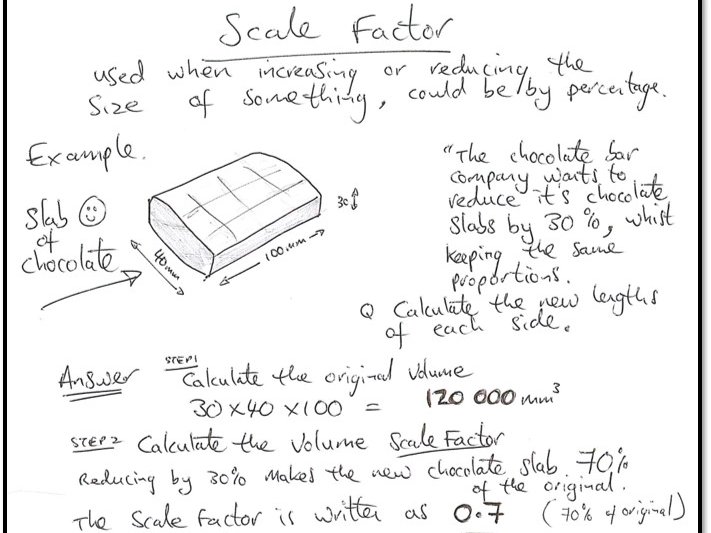 Scale Factor
used when increasing or reducing the
size of something, could be by percentage.
Example.
slab
of
chocolate
40mm
100mm
30
"The chocolate bar
company wants to
reduce it's chocolate
slabs by 30%, whist
keeping the same
proportions.
Q Calculate the new lengths
of each side.
Answer
STEP1
Calculate the original Volume
30 x 40 x 100 = 120 000 mm³
STEP 2 Calculate the Volume Scale Factor
Reducing by 30% makes the new chocolate slab 70%
of the original.
The Scale Factor is written as 0.7 (70% of original)